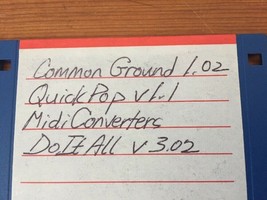 Common Ground 1.02
QuickPop v1.1
Midi Converters
DoItAll v 3.02